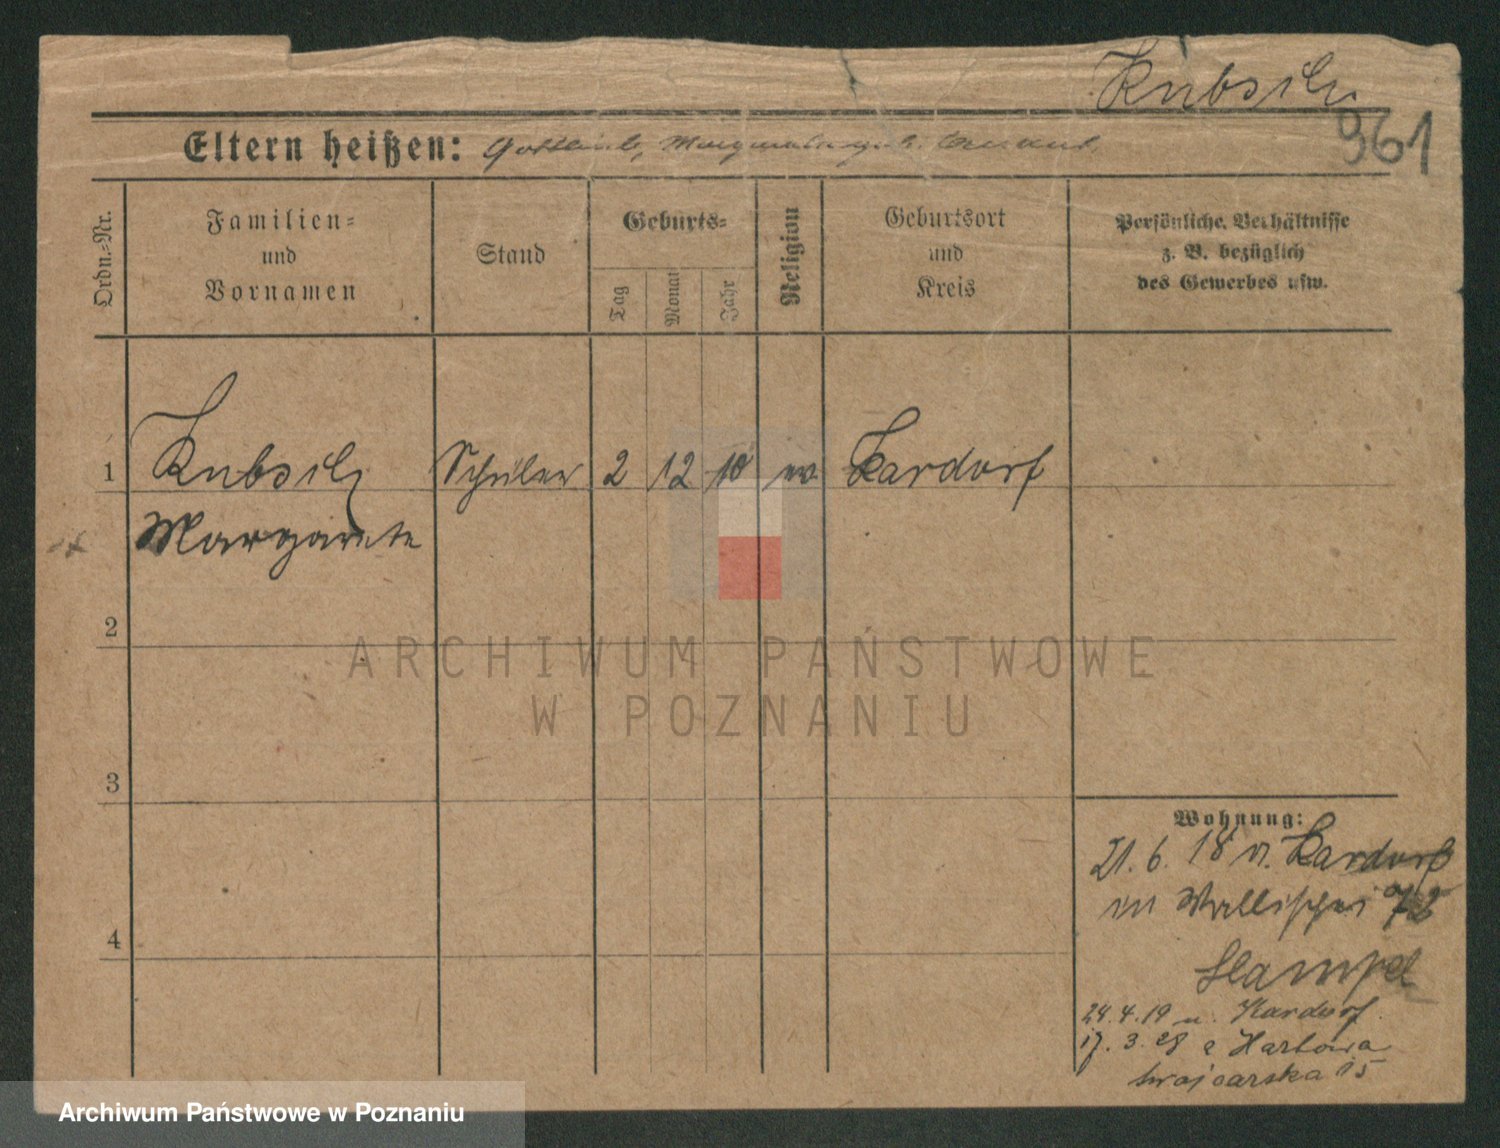 Kubsch
961
Eltern heißen: Gottlieb, Margareta geb.
Ordn.-Nr.
Familien-
und
Vornamen
Stand
Geburts-
Tag
Monat
Jahr
Religion
Geburtsort
und
Kreis
Persönliche Verhältnisse
z. B. bezüglich
des Gewerbes usw.
1
Kubsch Schüler 2 12 10 ev Kardorf
Margarete
2
3
4
Wohnung:
21. 6. 18 v. Kardorf
in Wallischei 72
Hampel
24. 4. 19 n. Kardorf
17. 3. 28
15
ARCHIWUM PAŃSTWOWE
W POZNANIU
Archiwum Państwowe w Poznaniu